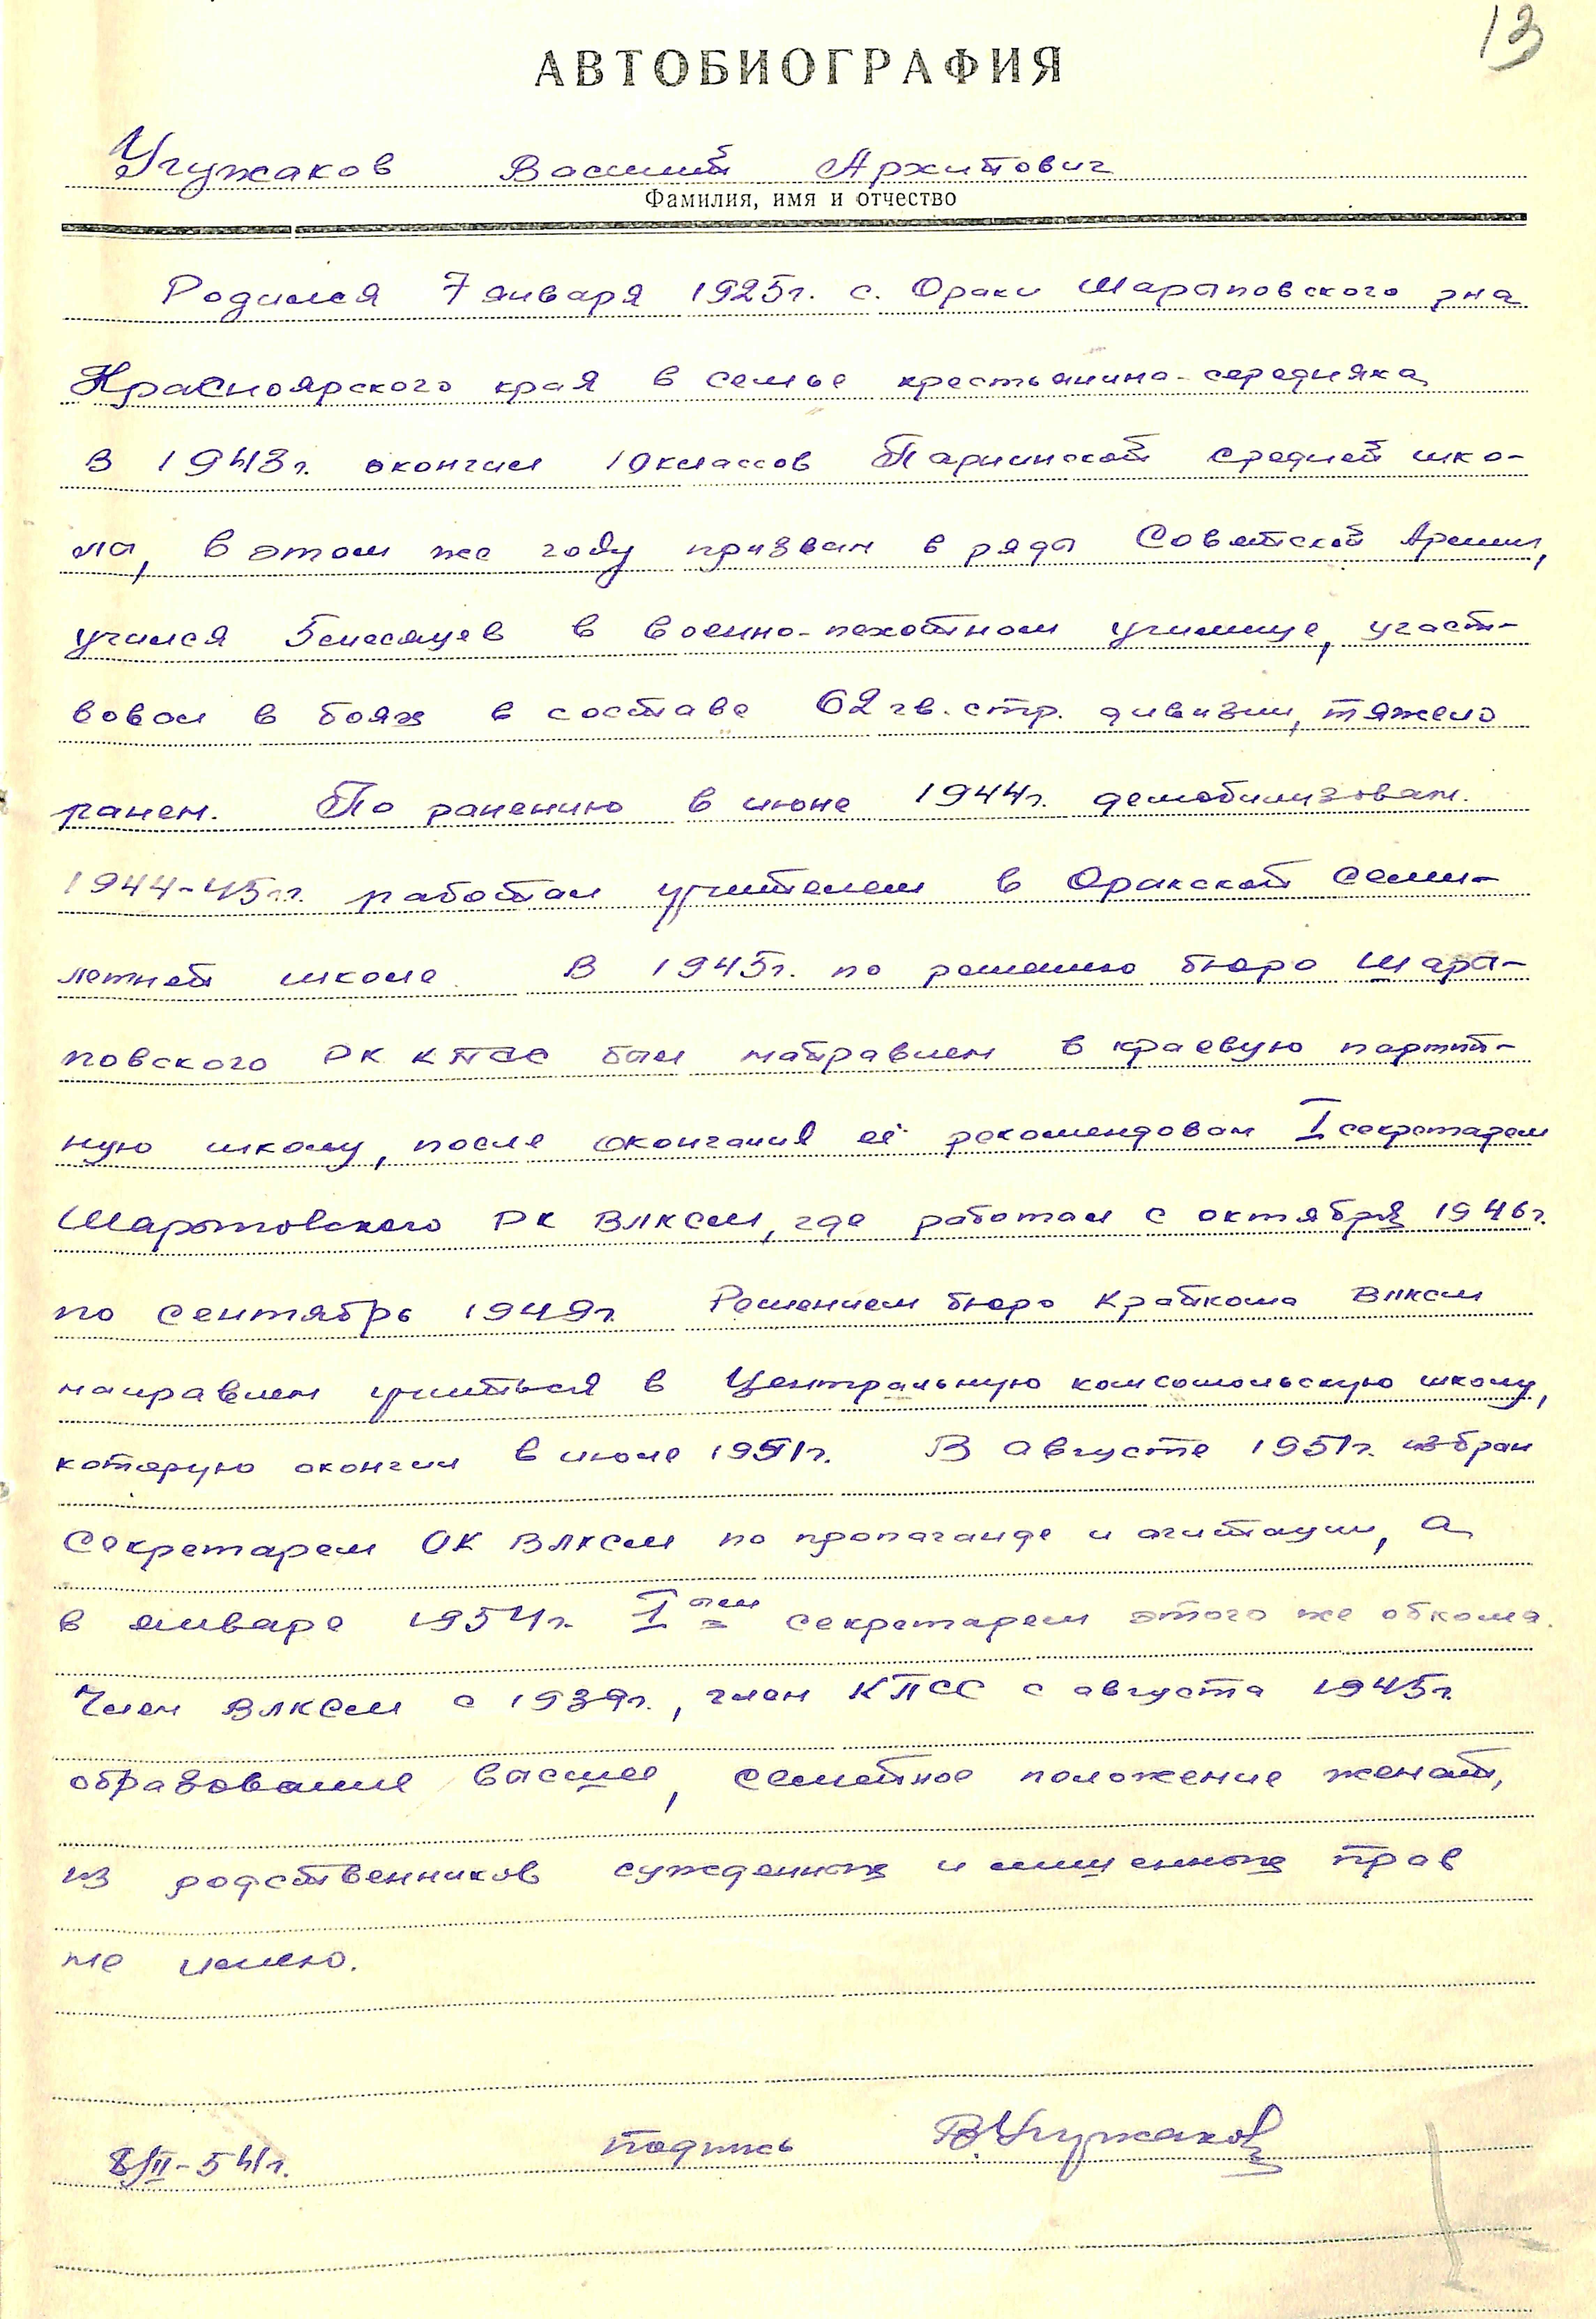 13
АВТОБИОГРАФИЯ
Угужаков Василий Архипович
Фамилия, имя и отчество
Родился 7 января 1925г. с. Ораки Шарыповского рна
Красноярского края в семье крестьянина-середняка
в 1943г. окончил 10 классов Парнинской средней шко-
лы, в этом же году призван в ряды Советской Армии,
учился 5 месяцев в военно-пехотном училище, участ-
вовал в боях в составе 62 гв. стр. дивизии, тяжело
ранен. По ранению в июне 1944г. демобилизован.
1944-45г.г. работал учителем в Оракской семи-
летней школе. В 1945г. по решению бюро Шары-
повского РК КПСС был направлен в краевую партий-
ную школу, после окончания её рекомендован I секретарем
Шарыповского РК ВЛКСМ, где работал с октября 1946г.
по сентябрь 1949г. Решением бюро Крайкома ВЛКСМ
направлен учиться в Центральную комсомольскую школу,
которую окончил в июле 1951г. В августе 1951г. избран
секретарем ОК ВЛКСМ по пропаганде и агитации, а
в январе 1954г. I ым секретарем этого же обкома.
Член ВЛКСМ с 1939г., член КПСС с августа 1945г
образование высшее, семейное положение женат,
из родственников сужденных и лишенных прав
не имею.
8/II-54г. подпись ВУгужаков